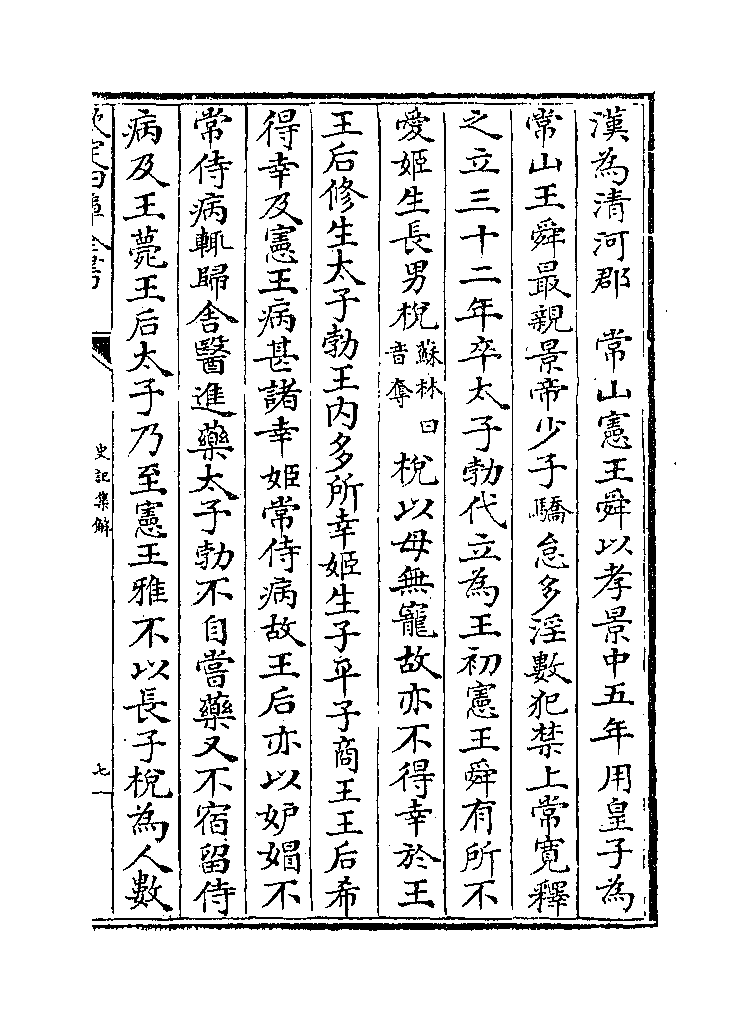 漢為清河郡　常山憲王舜以孝景中五年用皇子為
常山王舜最親景帝少子驕怠多淫數犯禁上常寬釋
之立三十二年卒太子勃代立為王初憲王舜有所不
愛姬生長男梲蘇林曰音奪梲以母無寵故亦不得幸於王
王后修生太子勃王内多所幸姬生子平子商王王后希
得幸及憲王病甚諸幸姬常侍病故王后亦以妒媢不
常侍病輒歸舍醫進藥太子勃不自嘗藥又不宿留侍
病及王薨王后太子乃至憲王雅不以長子梲為人數
欽定四庫全書
史記集解
七